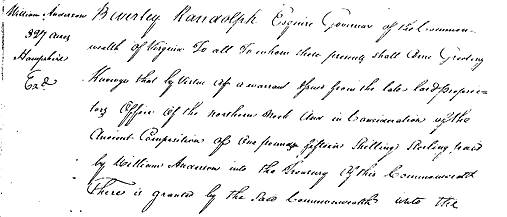 William Anderson
327 acres
Hampshire
Exd.
Beverley Randolph Esquire Governor of the Common-
wealth of Virginia To all To whom these presents shall Come Greeting
Know ye that by Virtue of a warrant Issued from the late Lord proprie-
tors Office of the Northern Neck and in Consideration of the
Ancient Composition of one pound fifteen Shillings Sterling paid
by William Anderson into the Treasury of this Commonwealth
There is granted by the said Commonwealth unto the